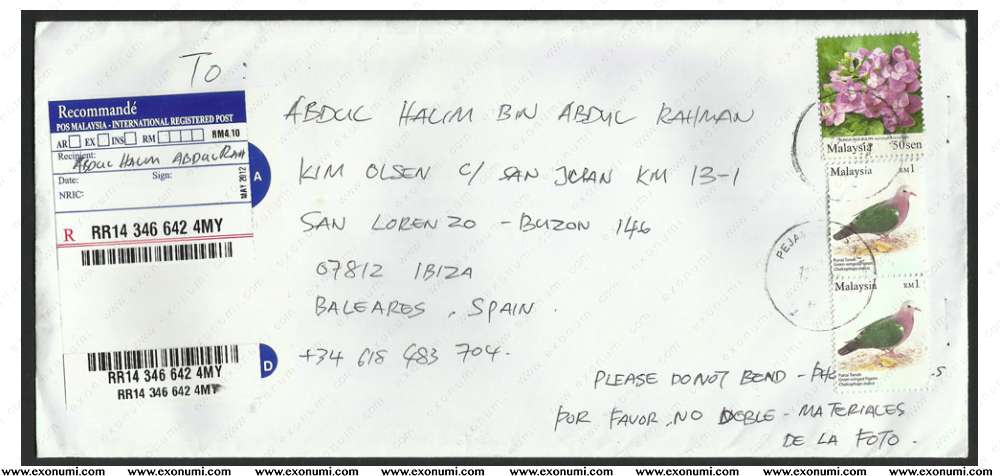 To:
Recommandé
POS MALAYSIA - INTERNATIONAL REGISTERED POST
AR EX INS RM RM4.10
Recipient: ABDUL HALIM ABDUL RAH
Date: Sign:
NRIC:
MAY 2012
A
R RR14 346 642 4MY
RR14 346 642 4MY
RR14 346 642 4MY
D
ABDUL HALIM BIN ABDUL RAHMAN
KIM OLSEN C/ SAN JOAN KM 13-1
SAN LORENZO - BUZON 146
07812 IBIZA
BALEARES, SPAIN.
+34 618 483 704.
PLEASE DO NOT BEND -
POR FAVOR, NO DOBLE - MATERIALES
DE LA FOTO.
Malaysia 50sen
Malaysia RM1
Punai Tanah
Green-winged Pigeon
Chalcophaps indica
Malaysia RM1
Punai Tanah
Green-winged Pigeon
Chalcophaps indica
www.exonumi.com www.exonumi.com www.exonumi.com www.exonumi.com www.exonumi.com www.exonumi.com www.exonumi.com www.exonumi.com